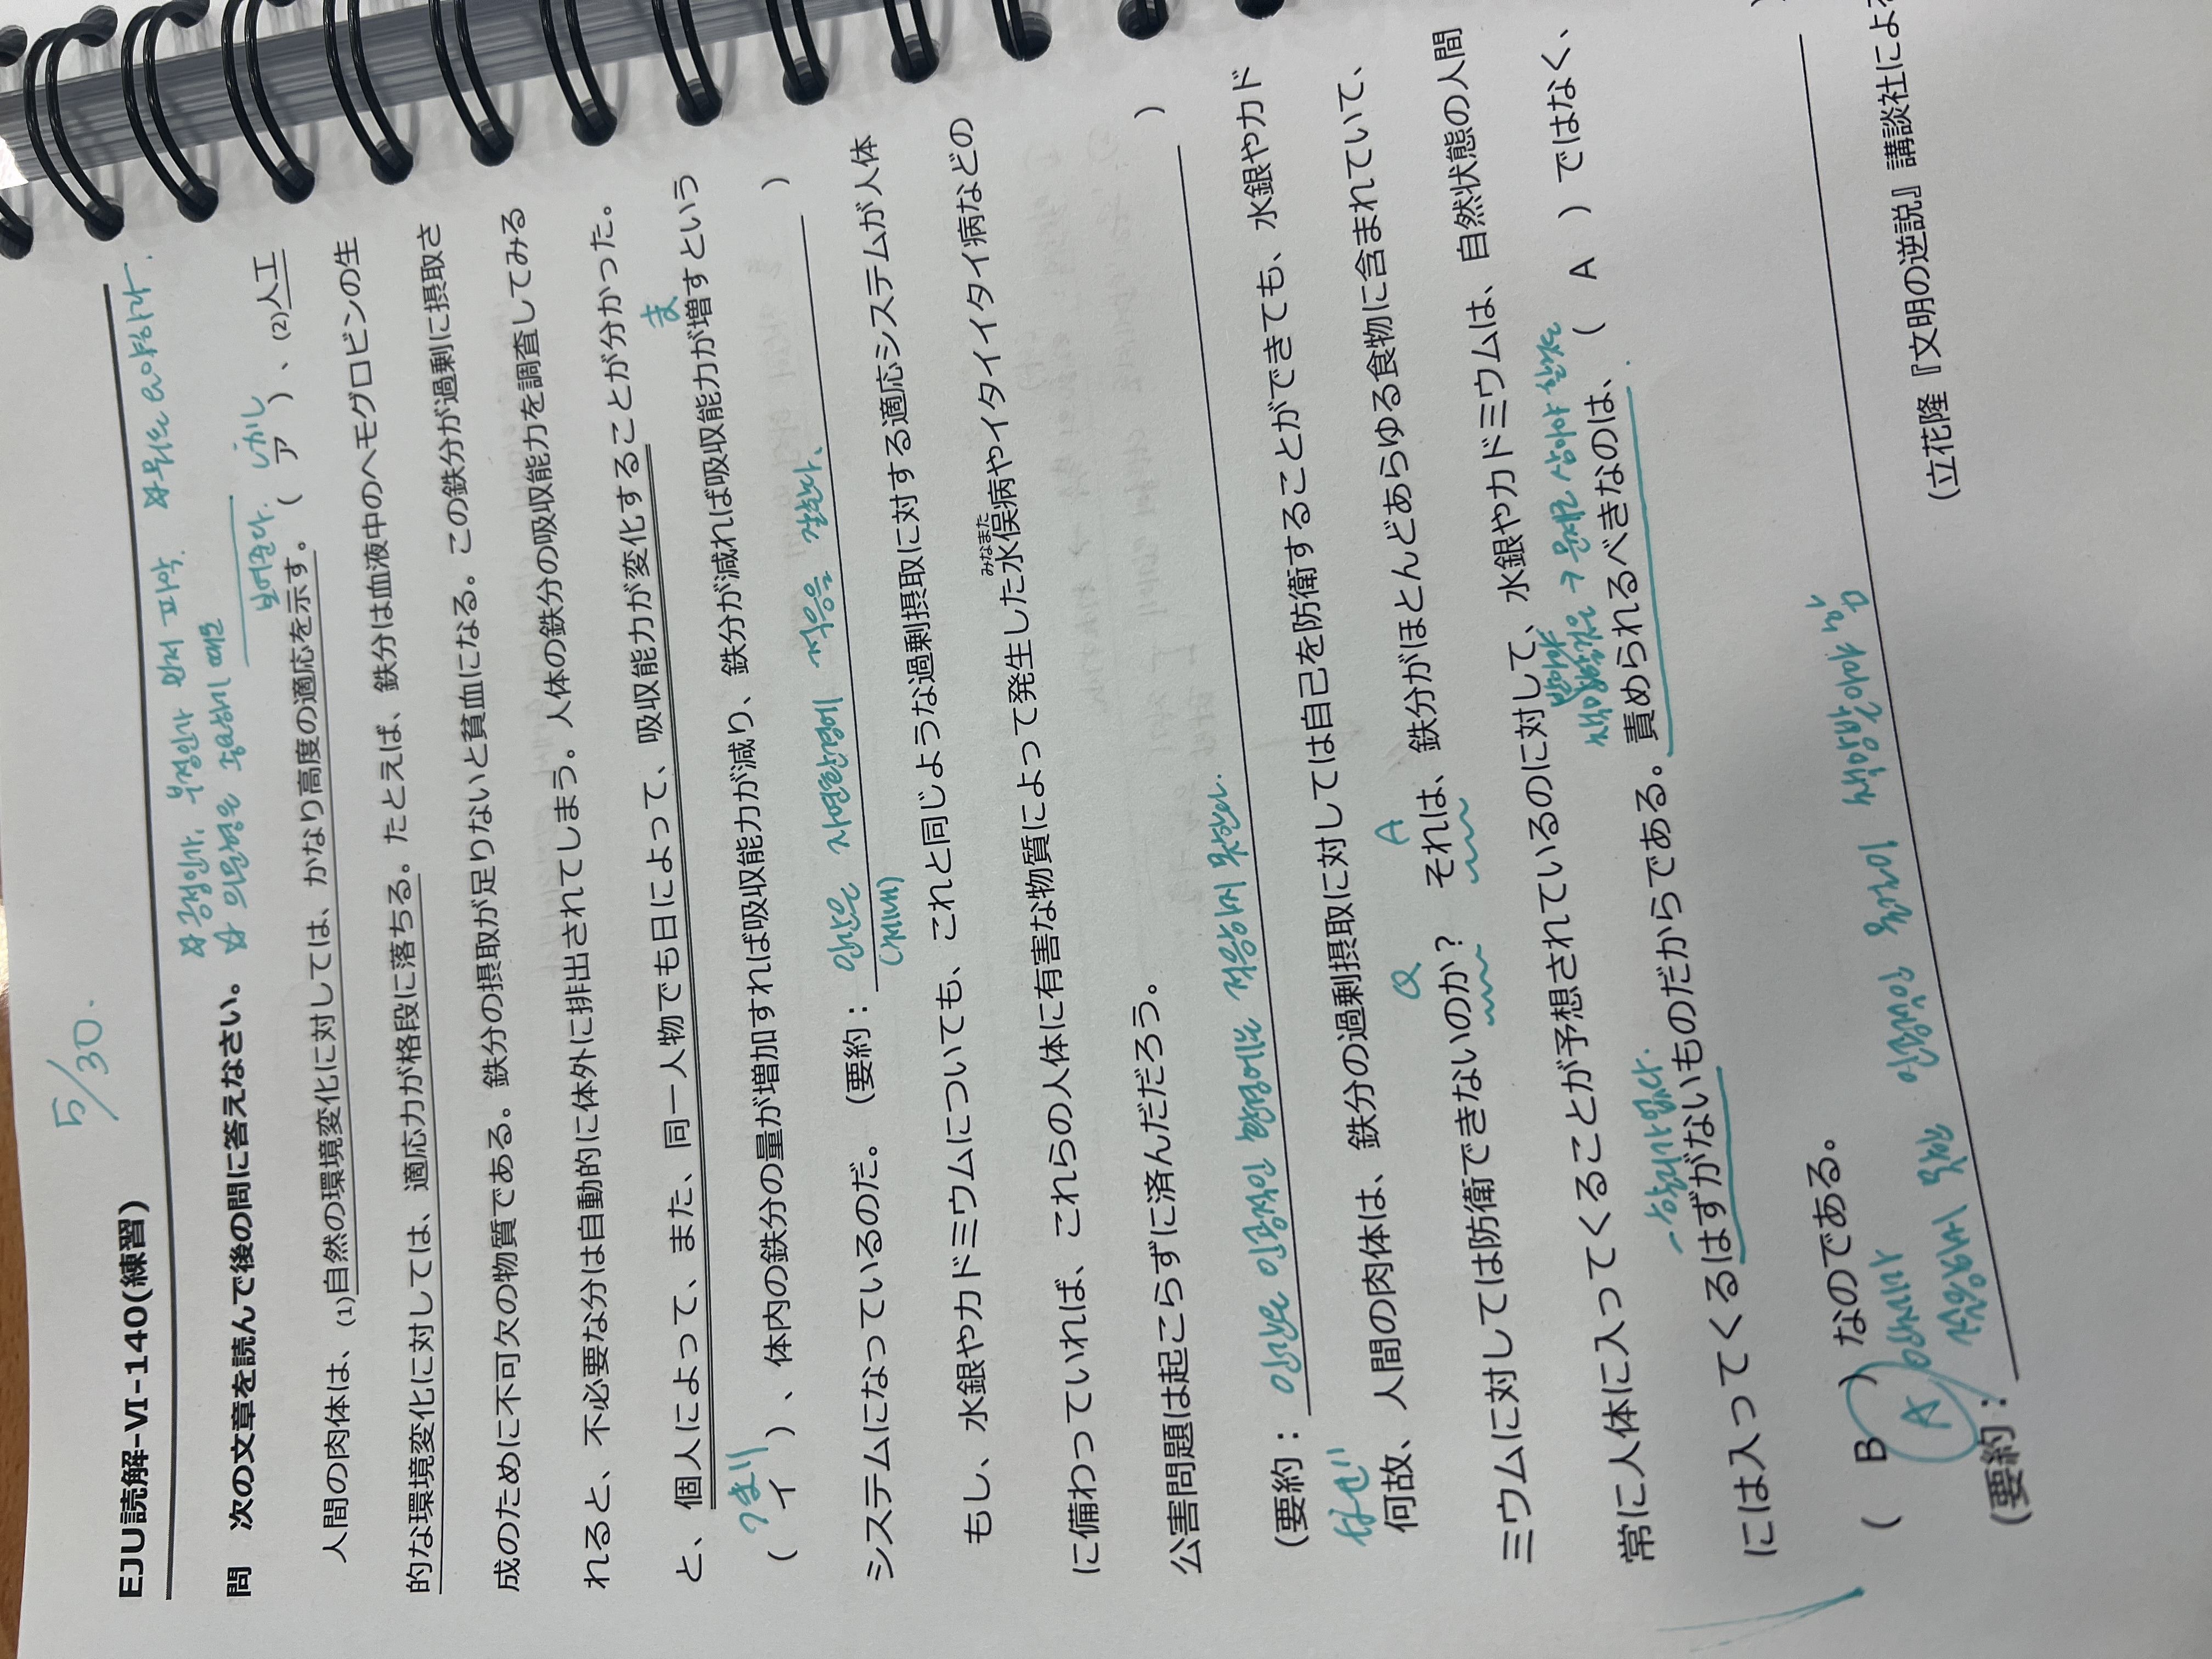 5/30.
EJU読解-VI-140(練習)
☆긍정인가, 부정인가 먼저 파악. ☆위는 요약하라.
問 次の文章を読んで後の問に答えなさい。 ☆의문형은 중요하기 때문
보여준다. しかし
人間の肉体は、(1)自然の環境変化に対しては、かなり高度の適応を示す。( ア )、(2)人工
的な環境変化に対しては、適応力が格段に落ちる。たとえば、鉄分は血液中のヘモグロビンの生
成のために不可欠の物質である。鉄分の摂取が足りないと貧血になる。この鉄分が過剰に摂取さ
れると、不必要な分は自動的に体外に排出されてしまう。人体の鉄分の吸収能力を調査してみる
と、個人によって、また、同一人物でも日によって、吸収能力が変化することが分かった。
つまり ま
( イ )、体内の鉄分の量が増加すれば吸収能力が減り、鉄分が減れば吸収能力が増すという
システムになっているのだ。(要約: 인간은 자연환경에 적응을 잘한다. )
(체내)
もし、水銀やカドミウムについても、これと同じような過剰摂取に対する適応システムが人体
に備わっていれば、これらの人体に有害な物質によって発生した水俣病やイタイイタイ病などの
みなまた
公害問題は起こらずに済んだだろう。
(要約: 인간은 인공적인 환경에는 적응하지 못한다. )
なぜ Q A
何故、人間の肉体は、鉄分の過剰摂取に対しては自己を防衛することができても、水銀やカド
ミウムに対しては防衛できないのか? それは、鉄分がほとんどあらゆる食物に含まれていて、
常に人体に入ってくることが予想されているのに対して、水銀やカドミウムは、自然状態の人間
-할리가 없다. 책망받아야
には入ってくるはずがないものだからである。責められるべきなのは、( A )ではなく、
( B )なのである。
A
(要約: 인공적인 물질이 책망받아야 함
(立花隆『文明の逆説』講談社による